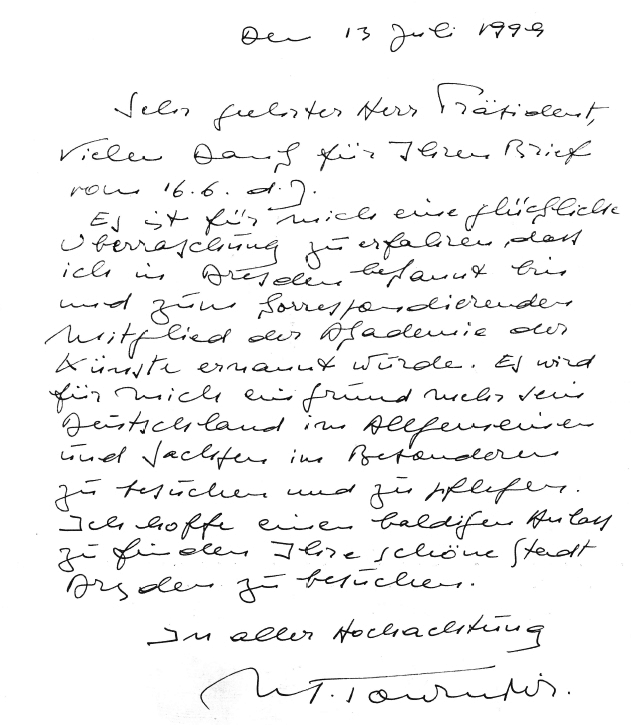 Den 13 Juli 1999
Sehr geehrter Herr Präsident,
Vielen Dank für Ihren Brief
vom 16.6. d.J.
Es ist für mich eine glückliche
Überraschung zu erfahren dass
ich in Dresden bekannt bin
und zum korrespondierenden
Mitglied der Akademie der
Künste ernannt wurde. Es wird
für mich ein Grund mehr sein
Deutschland im Allgemeinen
und Sachsen im Besonderen
zu besuchen und zu pflegen.
Ich hoffe einen baldigen Anlass
zu finden Ihre schöne Stadt
Dresden zu besuchen.
In aller Hochachtung
M. Tournier.